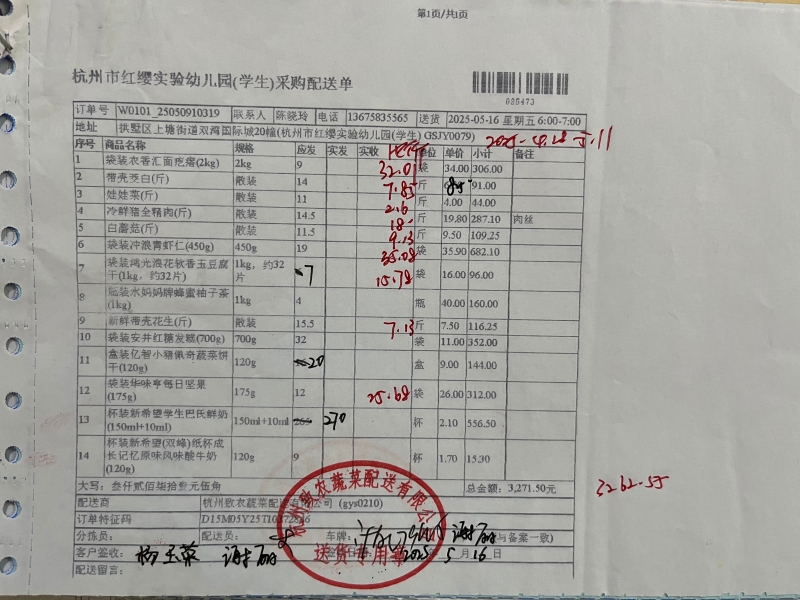 第1页/共1页
杭州市红缨实验幼儿园(学生)采购配送单
035473
订单号 W0101_25050910319 联系人 陈晓玲 电话 13675835565 送货 2025-05-16 星期五 6:00-7:00
地址 拱墅区上塘街道双湾国际城20幢(杭州市红缨实验幼儿园(学生) GSJY0079)
序号 商品名称 规格 应发 实发 实收 单位 单价 小计 备注
1 袋装衣香汇面疙瘩(2kg) 2kg 9 32.01 袋 34.00 306.00
2 带壳茭白(斤) 散装 14 7.85 斤 91.00
3 娃娃菜(斤) 散装 11 2.6 斤 4.00 44.00
4 冷鲜猪全精肉(斤) 散装 14.5 18 斤 19.80 287.10 肉丝
5 白蘑菇(斤) 散装 11.5 9.13 斤 9.50 109.25
6 袋装冲浪青虾仁(450g) 450g 19 35.08 袋 35.90 682.10
7 袋装鸿光浪花软香玉豆腐干(1kg，约32片) 1kg，约32片 7 15.78 袋 16.00 96.00
8 瓶装水妈妈牌蜂蜜柚子茶(1kg) 1kg 4 瓶 40.00 160.00
9 新鲜带壳花生(斤) 散装 15.5 7.13 斤 7.50 116.25
10 袋装安井红糖发糕(700g) 700g 32 袋 11.00 352.00
11 盒装亿智小猪佩奇蔬菜饼干(120g) 120g 20 盒 9.00 144.00
12 袋装华味亨每日坚果(175g) 175g 12 25.68 袋 26.00 312.00
13 杯装新希望学生巴氏鲜奶(150ml+10ml) 150ml+10ml 265 270 杯 2.10 556.50
14 杯装新希望(双峰)纸杯成长记忆原味风味酸牛奶(120g) 120g 9 杯 1.70 15.30
大写：叁仟贰佰柒拾叁元伍角 总金额：3,271.50元
3262.55
配送商 杭州致农蔬菜配送有限公司 (gys0210)
订单特征码
分拣员： 配送员： 车牌： 谢丽 (与备案一致)
客户签收： 杨玉荣 谢丽 2025 5 月 16 日
配送留言：
杭州致农蔬菜配送有限公司
送货专用章